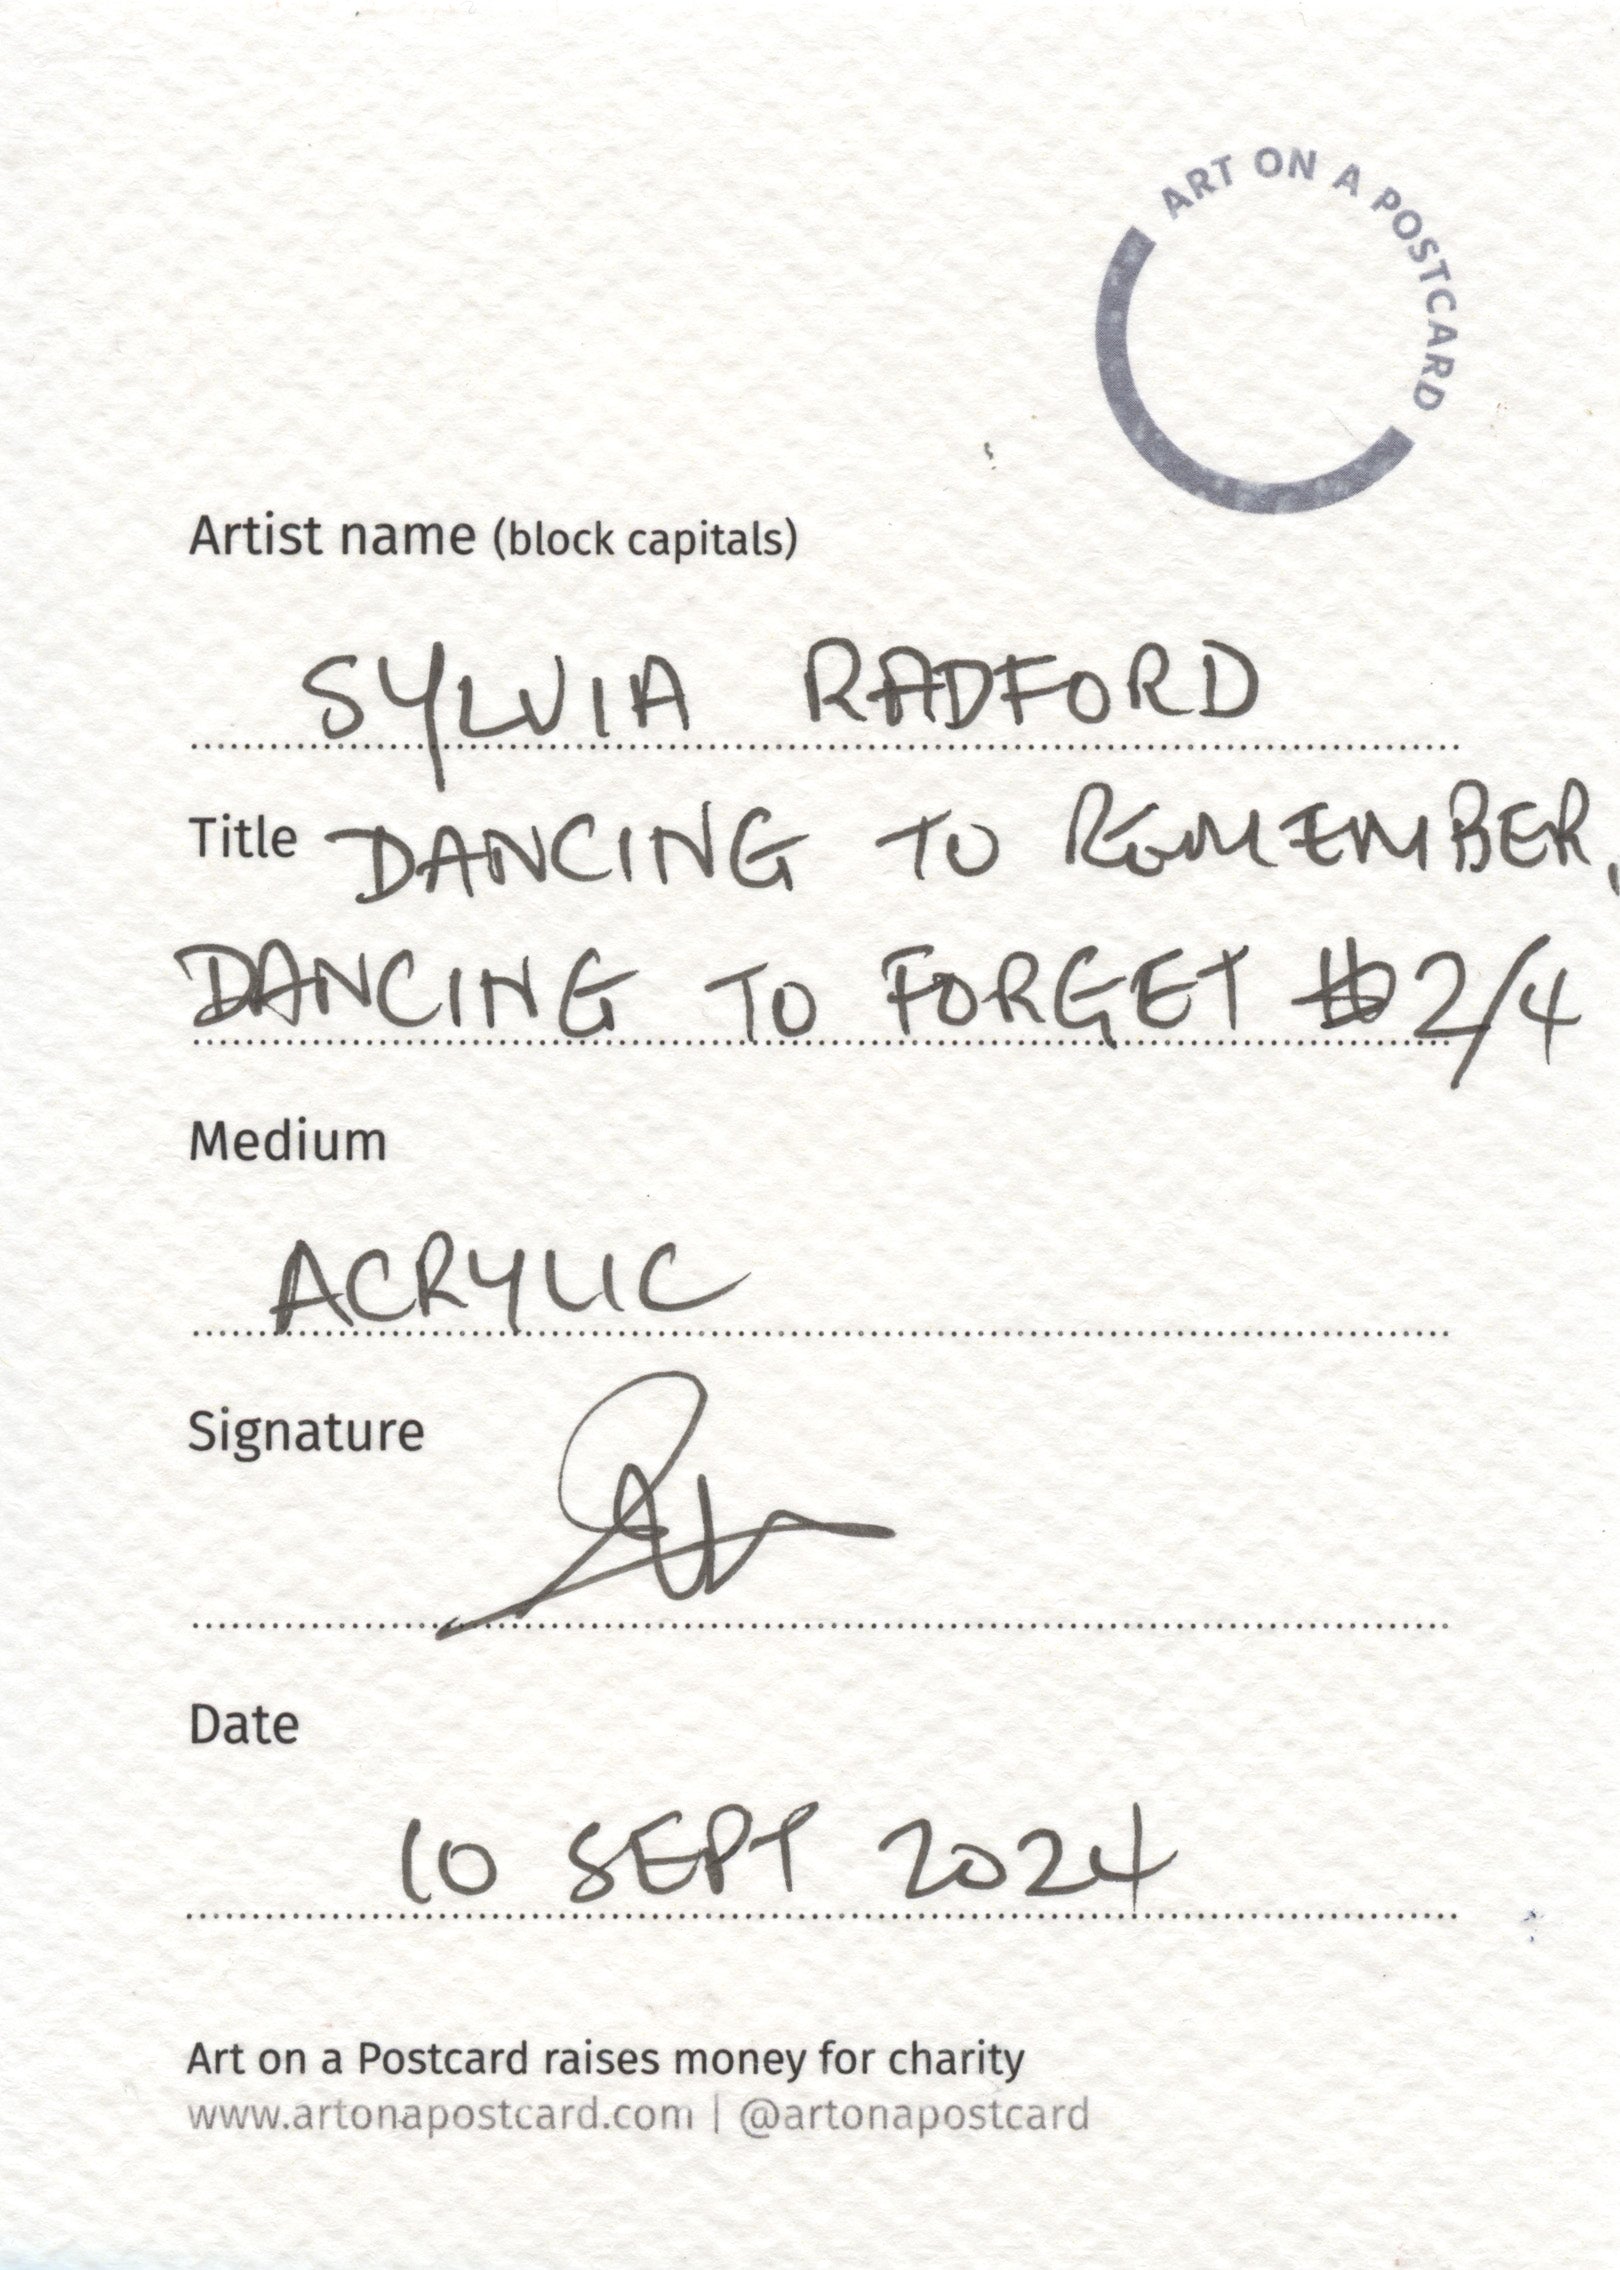 ART ON A POSTCARD
Artist name (block capitals)
SYLVIA RADFORD
Title DANCING TO REMEMBER,
DANCING TO FORGET 2/4
Medium
ACRYLIC
Signature
Date
10 SEPT 2024
Art on a Postcard raises money for charity
www.artonapostcard.com | @artonapostcard